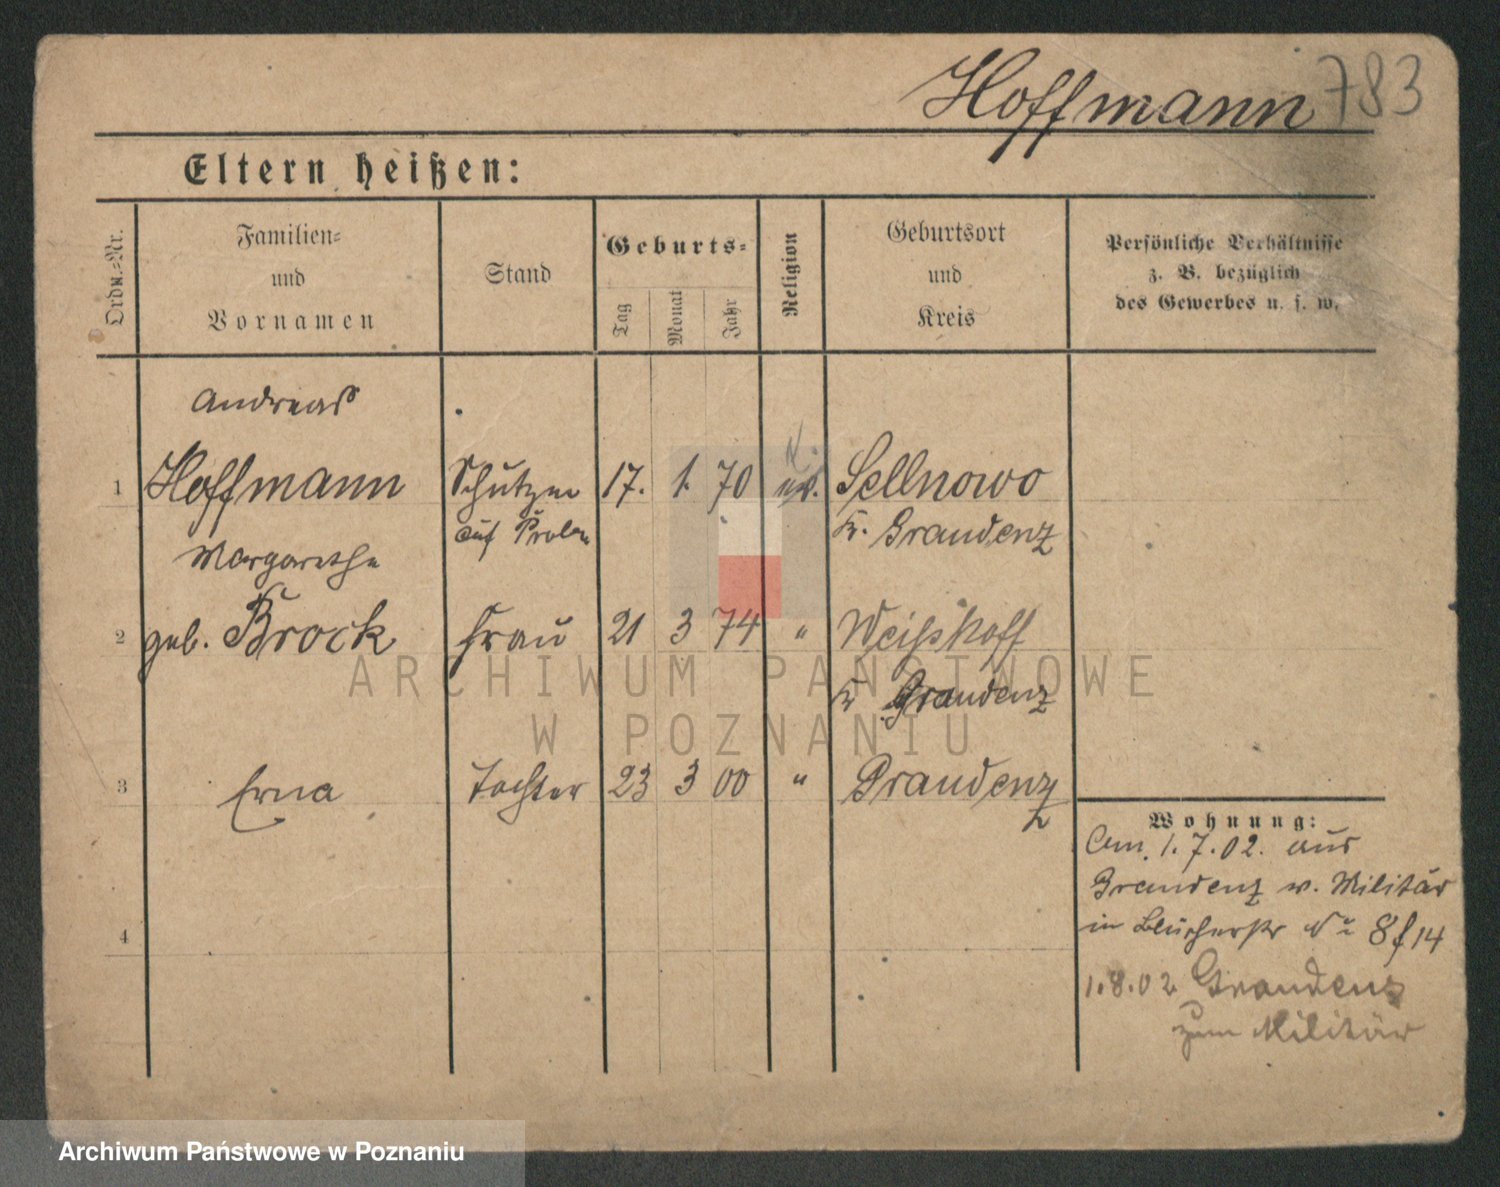 Hoffmann 783
Eltern heißen:
Ordn.=Nr.
Familien=
und
Vornamen
Stand
Geburts=
Tag
Monat
Jahr
Religion
Geburtsort
und
Kreis
Persönliche Verhältnisse
z. B. bezüglich
des Gewerbes u. s. w.
Andreas
1 Hoffmann Schutzm 17. 1. 70 Sellnowo
auf Probe Kr. Graudenz
Margarethe
2 geb. Brock Frau 21 3 74 " Weißhoff
Kr Graudenz
3 Erna Tochter 23 3 00 " Graudenz
4
Wohnung:
Am 1. 7. 02. aus
Graudenz v. Militär
in Blücherstr No 8 f 14
1.8.02 Graudenz
zum Militär
ARCHIWUM PAŃSTWOWE
W POZNANIU
Archiwum Państwowe w Poznaniu